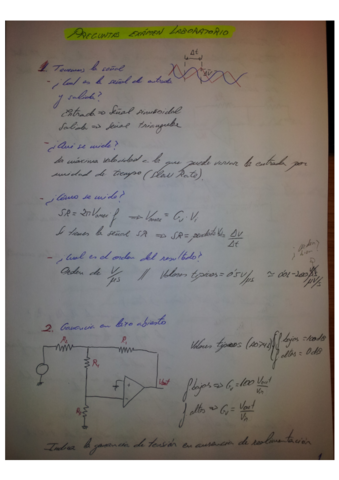 PREGUNTAS EXÁMEN LABORATORIO
Δt
1. Tenemos la señal
- ¿Cuál es la señal de entrada
y salida?
Entrada => Señal sinusoidal
Salida => Señal triangular
- ¿Qué se mide?
La máxima velocidad a la que puede variar la entrada por
unidad de tiempo (Slew Rate)
- ¿Cómo se mide?
SR = 2π Vmax f => Vmax = Gv Vi
Si tenemos la señal SR => SR = pendiente ΔV/Δt
- ¿Cuál es el orden del resultado?
Orden de V/μs // Valores típicos = 0'5 V/μs
2. Ganancia en lazo abierto
Valores típicos
f bajas => G = 100 Vout
f altas => Gv = Vout
R1
Vout
Indica la ganancia de tensión en ausencia de realimentación